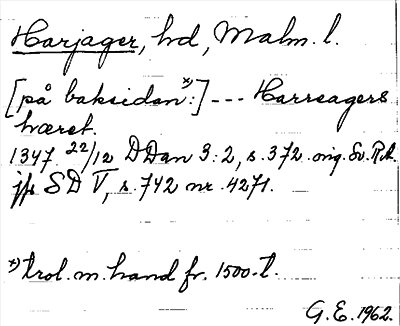 Harjager, hd, Malm. l.
[på baksidan *):] --- Harreagers
hæret.
1347 22/12 DDan 3:2, s. 372 orig. Sv. R.A.
jfr SD V, s. 742 nr. 4271.
*) trol. m. hand fr. 1500-t.
G. E. 1962.